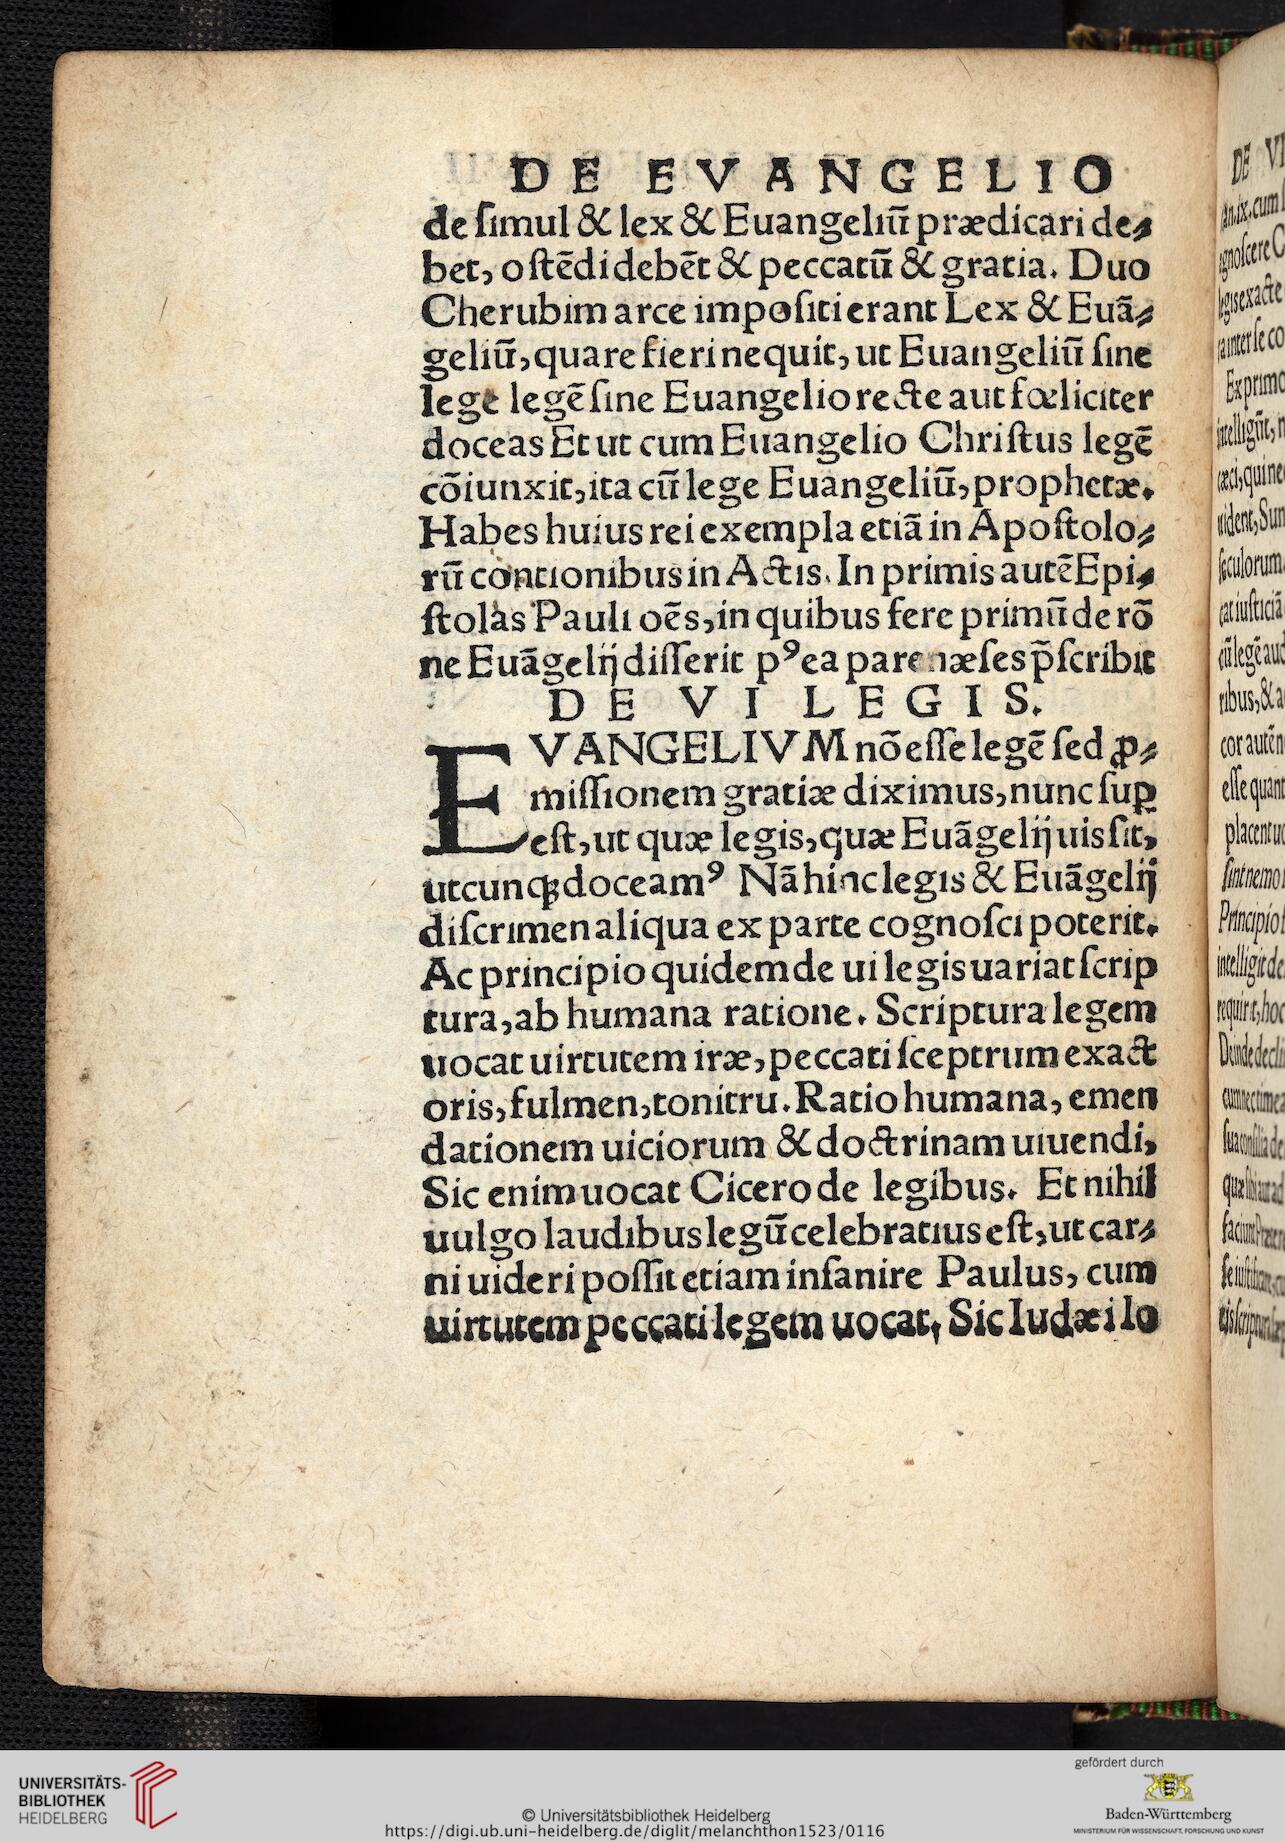 DE EVANGELIO
de simul & lex & Euangeliū prædicari de⸗
bet, ostēdi debēt & peccatū & gratia. Duo
Cherubim arce impositi erant Lex & Euā⸗
geliū, quare fieri nequit, ut Euangeliū sine
lege legē sine Euangelio recte aut fœliciter
doceas Et ut cum Euangelio Christus legē
cōiunxit, ita cū lege Euangeliū, prophetæ.
Habes huius rei exempla etiā in Apostolo⸗
rū contionibus in Actis. In primis autē Epi⸗
stolas Pauli oēs, in quibus fere primū de rō
ne Euāgelij disserit pꝰ ea parenæses p̄scribit
DE VI LEGIS.
EVANGELIVM nō esse legē sed ꝓ⸗
missionem gratiæ diximus, nunc suꝑ
est, ut quæ legis, quæ Euāgelij uis sit,
utcunqꝫ doceamꝰ Nā hinc legis & Euāgelij
discrimen aliqua ex parte cognosci poterit.
Ac principio quidem de ui legis uariat scrip
tura, ab humana ratione. Scriptura legem
uocat uirtutem iræ, peccati sceptrum exact
oris, fulmen, tonitru. Ratio humana, emen
dationem uiciorum & doctrinam uiuendi,
Sic enim uocat Cicero de legibus. Et nihil
uulgo laudibus legū celebratius est, ut car⸗
ni uideri possit etiam insanire Paulus, cum
uirtutem peccati legem uocat, Sic Iudæi lo
DE VI
cum
Exprimo
cor autēn
esse quant
placent
sint nemo
Principio
intelligit de
UNIVERSITÄTS-
BIBLIOTHEK
HEIDELBERG
© Universitätsbibliothek Heidelberg
https://digi.ub.uni-heidelberg.de/diglit/melanchthon1523/0116
gefördert durch
Baden-Württemberg
MINISTERIUM FÜR WISSENSCHAFT, FORSCHUNG UND KUNST